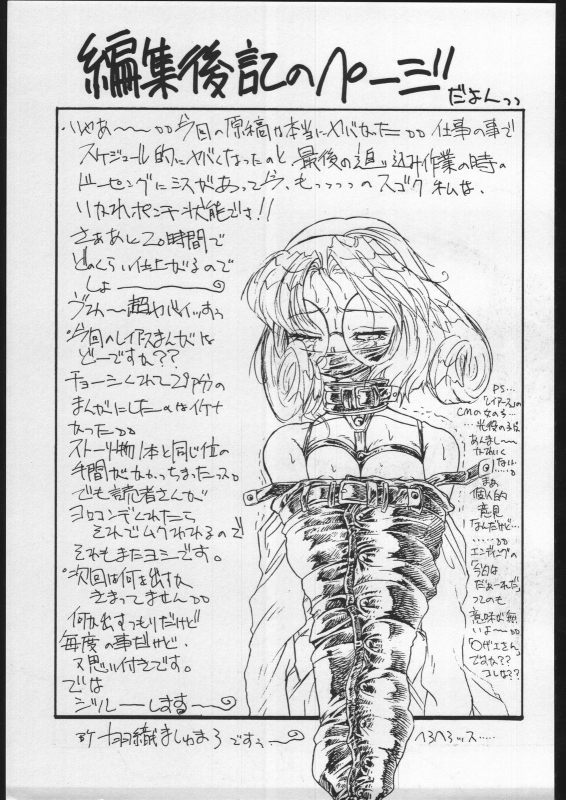 編集後記のページ
だよんっっ
・いやあ〜〜〜○○今回の原稿は本当にヤバかった○○仕事の事で
スケジュール的にヤバくなったのと、最後の追い込み作業の時の
ドーピングにミスがあって今、もっっっっのスゴク私は、
いかれポンチー状態でさ!!
さああと20時間で
どのくらい仕上がるので
しょーーーー
うひ〜超ヤバイッすぅ
・今回のレイアースまんがは
どーですか??
チョーシくれて29P分の
まんがにしたのはイケナ
かった○○
ストーリー物1本と同じ位の
手間がかかっちまったっス○
でも読者さんが
ヨロコンでくれたら
それでムクわれるので
それもまたヨシです。
・次回は何を出すか
きまってません○○
何か出すつもりだけど
毎度の事だけど、
又思い付きです。
では
ジルーーしまするーー
PS…
「レイアース」の
CMの女の子…
…光役の子は
あんまし〜
かわいく
ない…
…まあ
個人的
意見
なんだけど…
……○○
エンディングの
「今のは
だぁーれだ」
ってのも
意味が無
いよ〜○○
「○ザエさん」
ですか??
コレは??
羽織ましゅまろですぅ〜
へろへろッス……